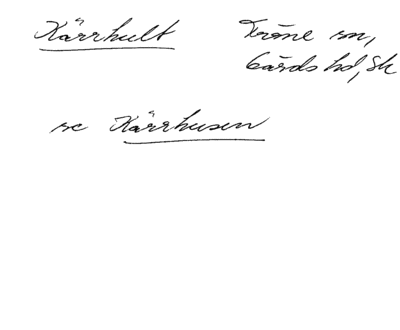 Kärrhult
Tråne sn,
Gärds hd, Sk
se Kärrhusen